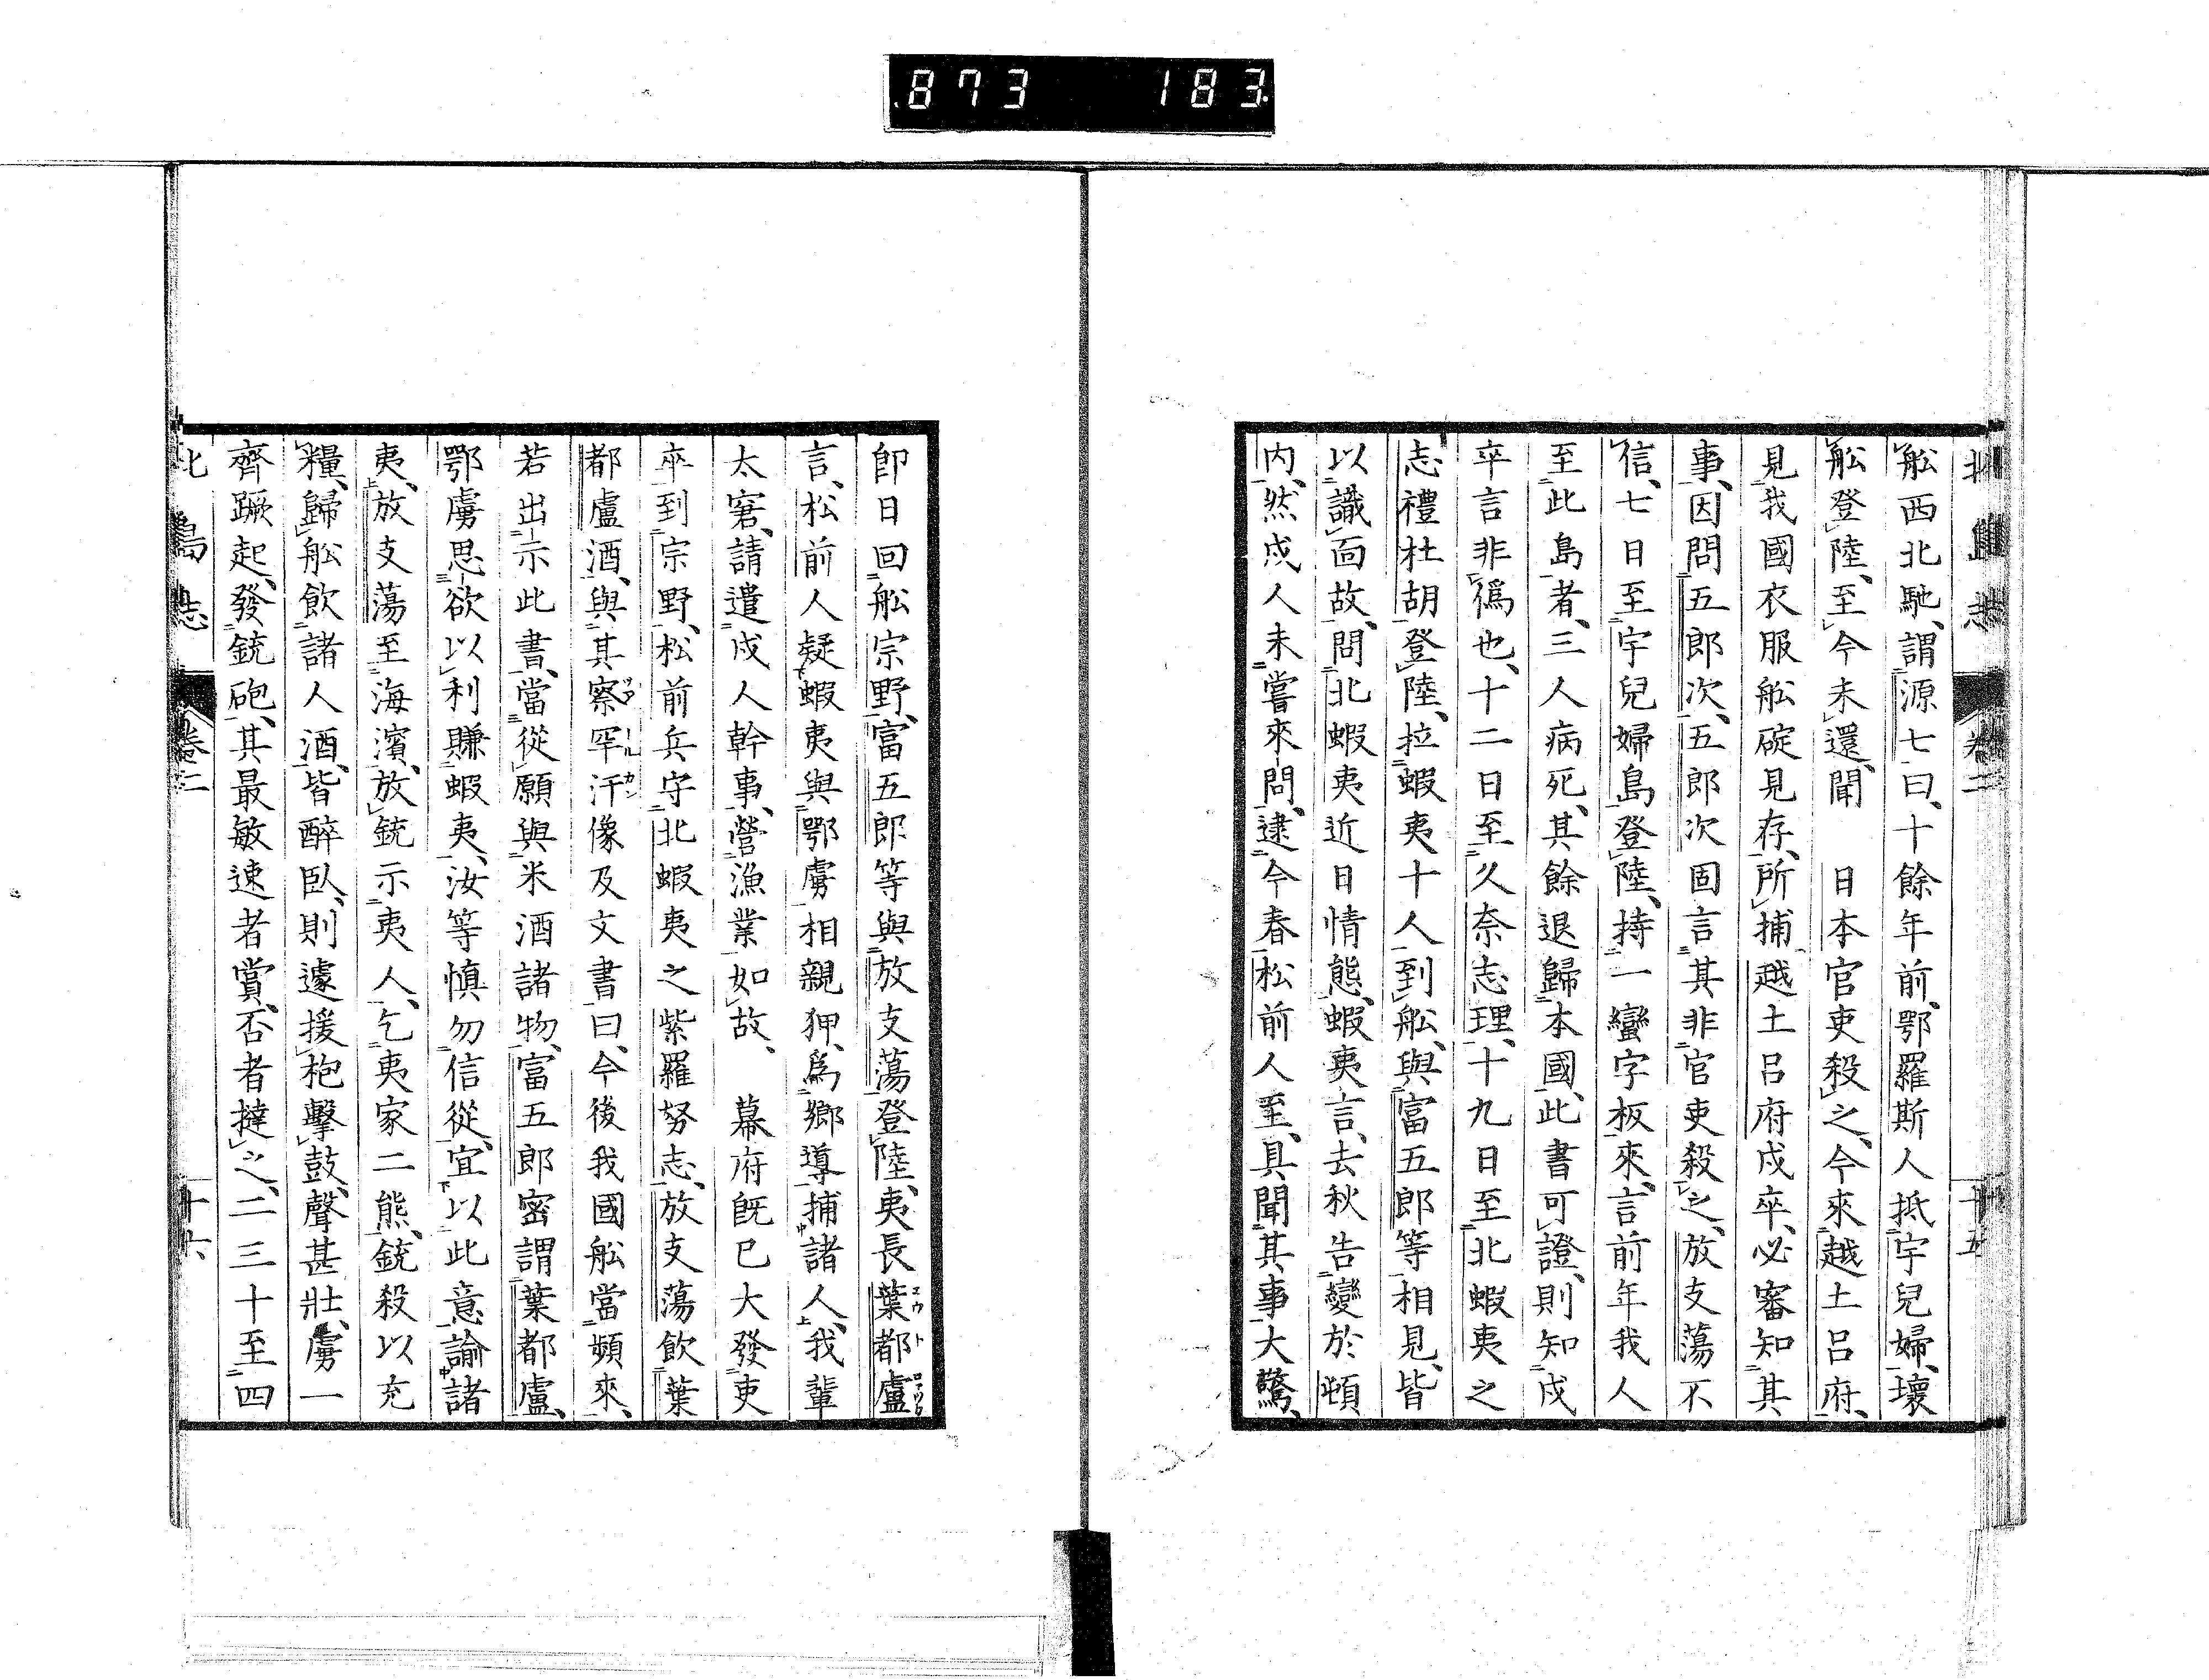 873 183
北島志 卷二 十五
舩西北馳、謂源七曰、十餘年前、鄂羅斯人抵宇兒婦、壞
舩登陸、至今未還、聞 日本官吏殺之、今來越土呂府、
見我國衣服舩碇見存、所捕越土呂府戍卒、必審知其
事、因問五郎次、五郎次固言其非官吏殺之、放支蕩不
信、七日至宇兒婦島登陸、持一蠻字板來、言前年我人
至此島者、三人病死、其餘退歸本國、此書可證、則知戍
卒言非僞也、十二日至久奈志理、十九日至北蝦夷之
志禮杜胡登陸、拉蝦夷十人到舩、與富五郎等相見、皆
以識面故、問北蝦夷近日情態、蝦夷言、去秋告變於頓
内、然戍人未嘗來問、逮今春松前人至、具聞其事大驚、
卽日回舩宗野、富五郎等與放支蕩登陸、夷長葉都盧
エウトロマツク
言、松前人疑蝦夷與鄂虜相親狎、爲鄉導捕諸人、我輩
太窘、請遣戍人幹事、營漁業如故、 幕府既已大發吏
卒到宗野、松前兵守北蝦夷之紫羅努志、放支蕩飮葉
都盧酒、與其察罕汗像及文書曰、今後我國舩當頻來、
ツアールカン
若出示此書、當從願與米酒諸物、富五郎密謂葉都盧、
鄂虜思欲以利賺蝦夷、汝等愼勿信從、宜以此意諭諸
夷、放支蕩至海濱、放銃示夷人、乞夷家二熊、銃殺以充
糧、歸舩飮諸人酒、皆醉臥、則遽援枹擊鼓、聲甚壯、虜一
齊蹶起、發銃砲、其最敏速者賞、否者撻之、二三十至四
北島志 卷二 十六